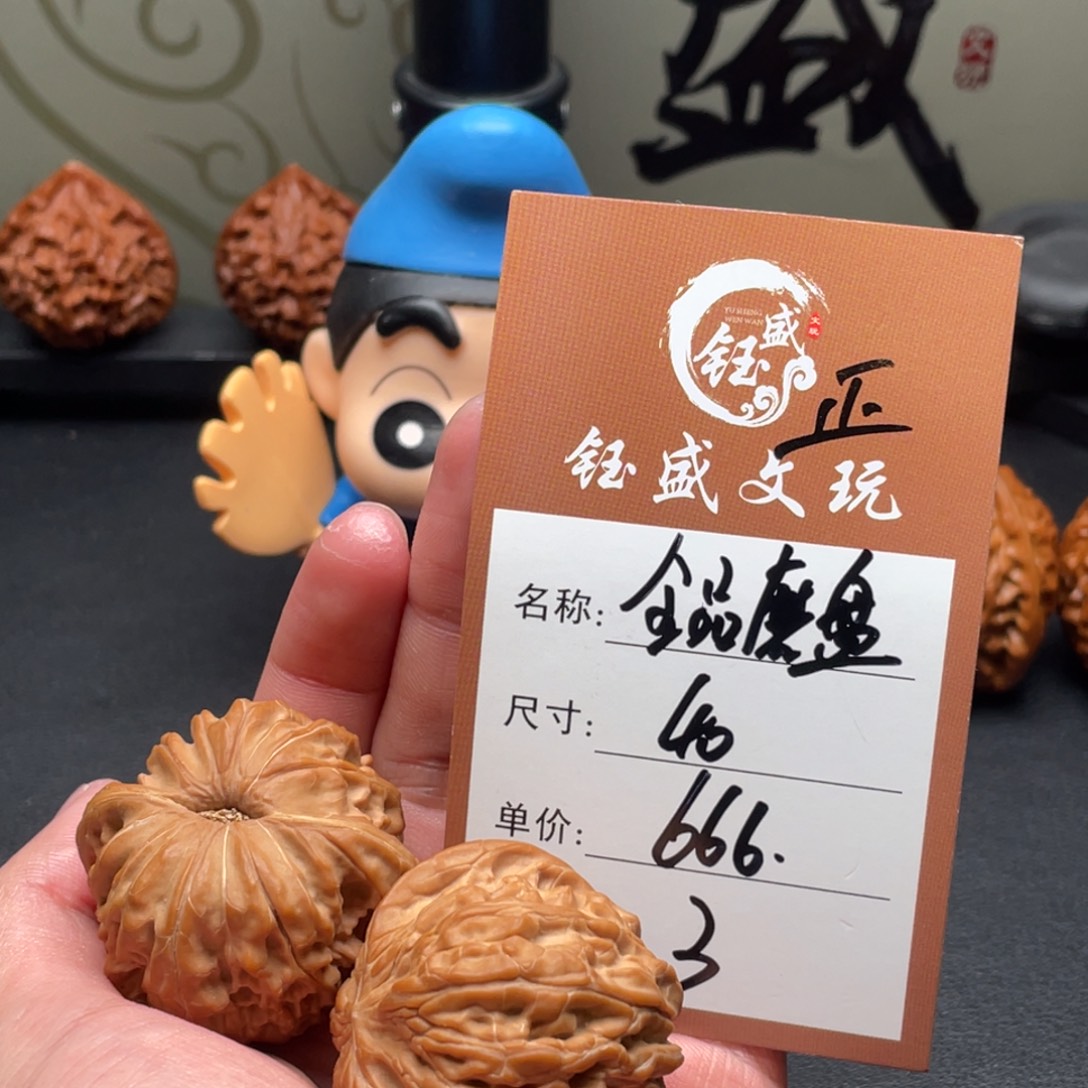 盛
YU SHENG
WEN WAN
钰盛
文玩
正
钰盛文玩
名称: 全品磨盘
尺寸: 40
单价: 666.
3